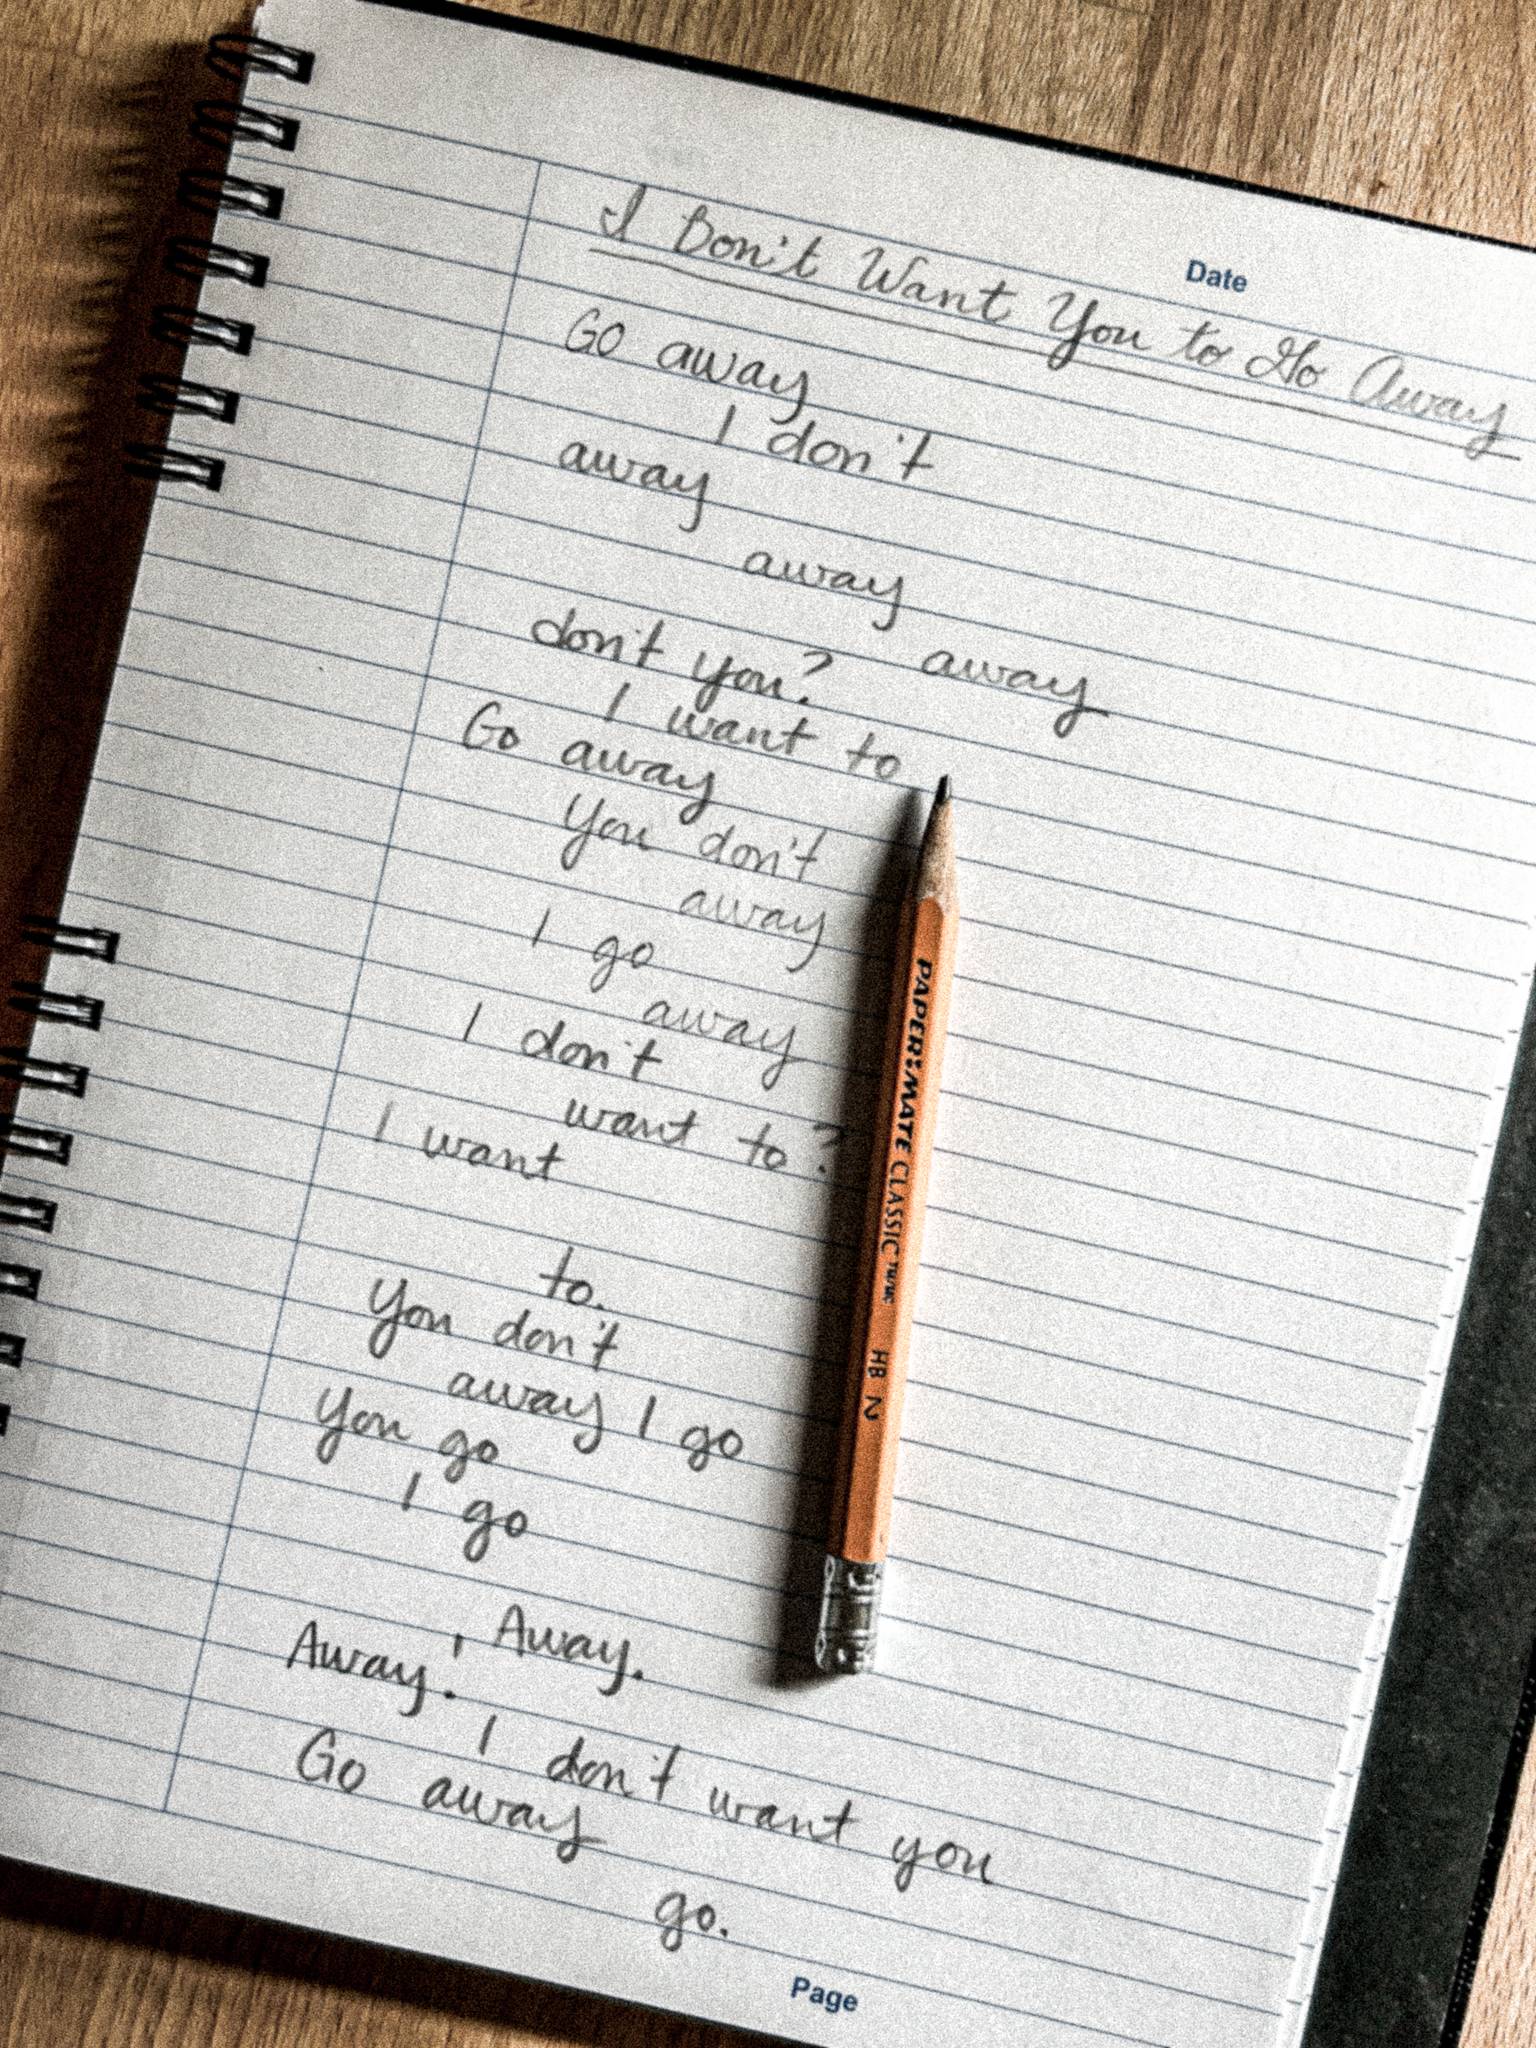 Date
I Don't Want You to Go Away
Go away
I don't
away
away
away
don't you?
I want to
Go away
You don't
away
I go
away
I don't
want to?
I want
to.
You don't
away I go
You go
I go
Away.
Away!
I don't want you
Go away
go.
Page
PAPER:MATE CLASSIC HB 2